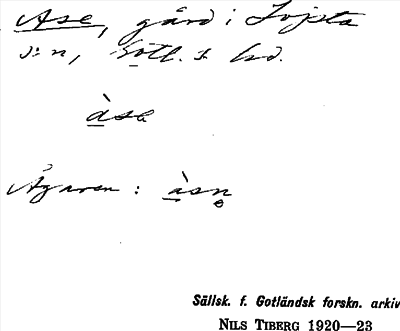 Ase, gård i Lojsta
s:n, Gotl. s. hd.
àse
Ägaren : àsn̥
Sällsk. f. Gotländsk forskn. arkiv
NILS TIBERG 1920—23